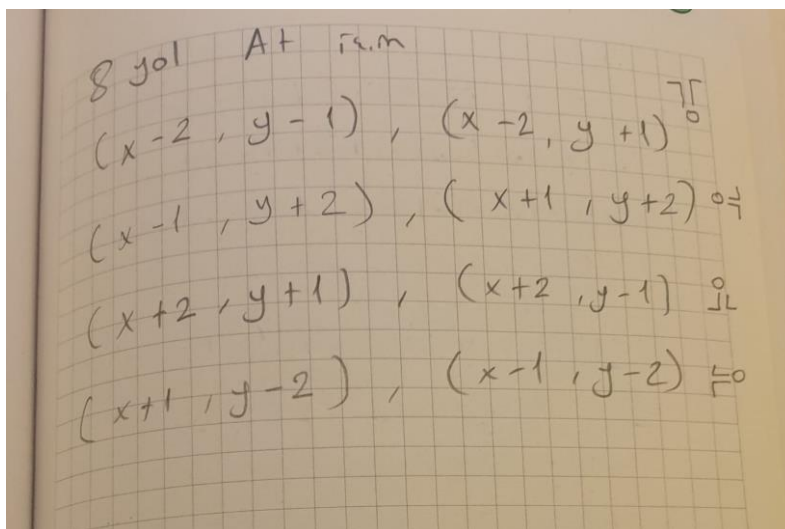 8 yol At için
(x-2, y-1), (x-2, y+1)
(x-1, y+2), (x+1, y+2)
(x+2, y+1), (x+2, y-1)
(x+1, y-2), (x-1, y-2)